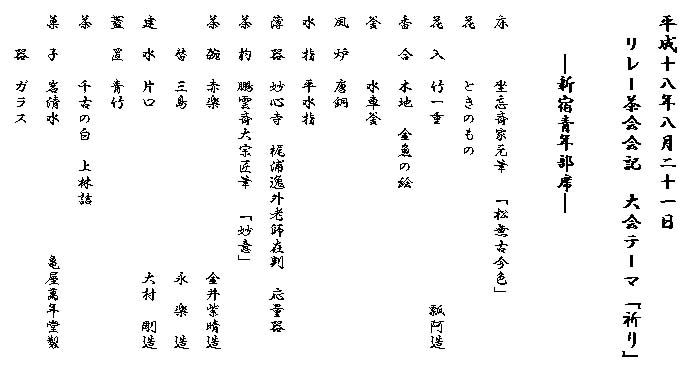 平成十八年八月二十一日
リレー茶会会記 大会テーマ「祈り」
―新宿青年部席―
床 坐忘斎家元筆 「松無古今色」
花 ときのもの
花入 竹一重 瓢阿造
香合 木地 金魚の絵
釜 水車釜
風炉 唐銅
水指 平水指
薄器 妙心寺 梶浦逸外老師在判 応量器
茶杓 鵬雲斎大宗匠筆 「妙意」
茶碗 赤楽 金井紫晴造
替 三島 永楽造
建水 片口 大村剛造
蓋置 青竹
茶 千古の白 上林詰
菓子 岩清水 亀屋萬年堂製
器 ガラス